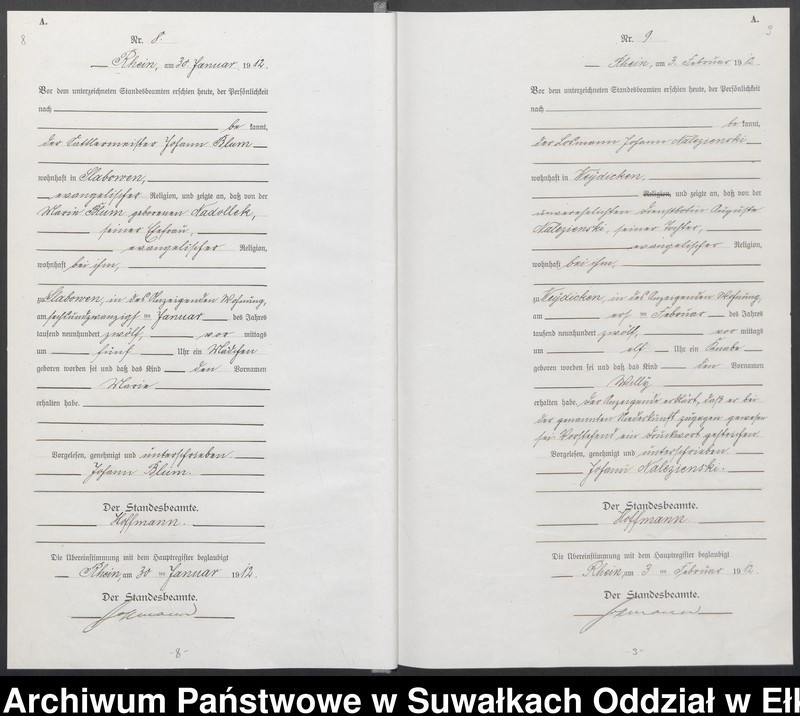 8
A.
Nr. 8.
Rhein, am 30. Januar 1912.
Vor dem unterzeichneten Standesbeamten erschien heute, der Persönlichkeit
nach
be kannt,
der Sattlermeister Johann Blum
wohnhaft in Slabowen,
evangelischer Religion, und zeigte an, daß von der
Marie Blum geborenen Nadollek,
seiner Ehefrau,
evangelischer Religion,
wohnhaft bei ihm,
zu Slabowen, in des Anzeigenden Wohnung,
am sechsundzwanzigsten Januar des Jahres
tausend neunhundert zwölf, vor mittags
um fünf Uhr ein Mädchen
geboren worden sei und daß das Kind den Vornamen
Marie
erhalten habe.
Vorgelesen, genehmigt und unterschrieben
Johann Blum.
Der Standesbeamte.
Hoffmann.
Die Übereinstimmung mit dem Hauptregister beglaubigt
Rhein, am 30 ten Januar 1912.
Der Standesbeamte.
Hoffmann
-8-
A.
9
Nr. 9
Rhein, am 3. Februar 1912.
Vor dem unterzeichneten Standesbeamten erschien heute, der Persönlichkeit
nach
be kannt,
der Losmann Johann Nalezienski
wohnhaft in Weydicken,
Religion, und zeigte an, daß von der
unverehelichten Dienstbotin Auguste
Nalezienski, seiner Tochter,
evangelischer Religion,
wohnhaft bei ihm,
zu Weydicken, in des Anzeigenden Wohnung,
am ersten Februar des Jahres
tausend neunhundert zwölf, vor mittags
um elf Uhr ein Knabe
geboren worden sei und daß das Kind den Vornamen
Willy
erhalten habe. Der Anzeigende erklärt, daß er bei
der genannten Niederkunft zugegen gewesen
sei. Vorstehend ein Druckwort gestrichen.
Vorgelesen, genehmigt und unterschrieben
Johann Nalezienski.
Der Standesbeamte.
Hoffmann
Die Übereinstimmung mit dem Hauptregister beglaubigt
Rhein, am 3 ten Februar 1912.
Der Standesbeamte.
Hoffmann
Archiwum Państwowe w Suwałkach Oddział w Ełk